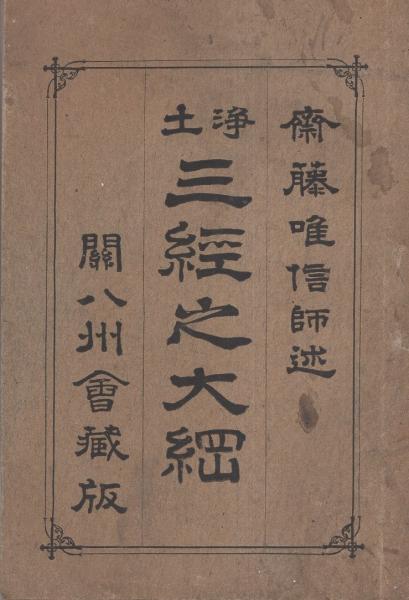 齋藤唯信師述
淨土
三經之大綱
關八州會藏版